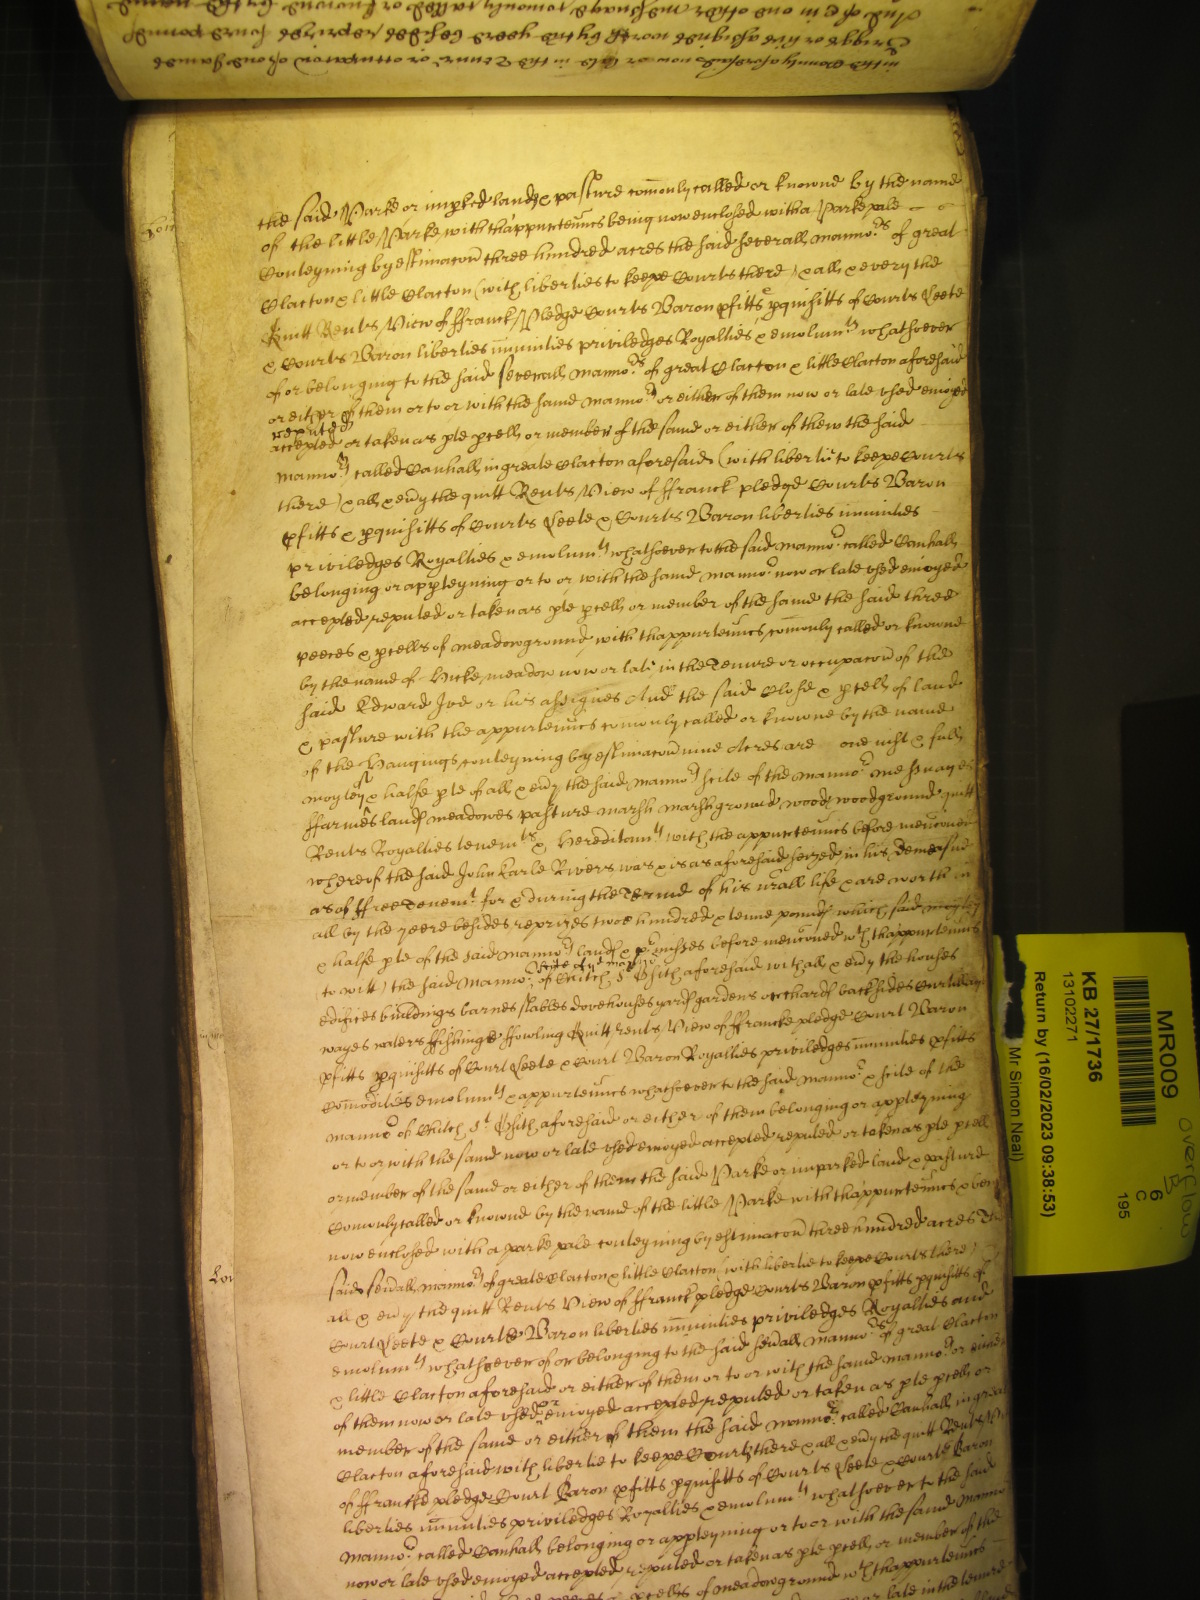 the said Parke or impked lands & pasture comonly called or knowne by the name
of the little Parke with thappurtenncs being now enclosed with a Parke pale
Conteyning by estimacon three hundred acres the said severall manno.rs of great
Clacton & little Clacton (with liberties to keepe Courts there) & all & every the
Quitt Rents View of ffranck Pledge Courts Baron pfitts pquisitts of Courts Leete
& Courts Baron liberties imunities priviledges Royalties & emolumts whatsoever
of or belonging to the said severall manno.rs of great Clacton & little Clacton aforesaid
or either of them or to or with the same manno.rs or either of them now or late used enioyed
reputed
accepted or taken as pte pcell or member of the same or either of them the said
manno.r called Canhall in greate Clacton aforesaid (with libertie to keepe Courts
there) & all & evy the quitt Rents View of ffranck pledge Courts Baron
pfitts & pquisitts of Courts Leete & Courts Baron liberties imunities
priviledges Royalties & emolumts whatsoever to the said manno.r called Canhall
belonging or appteyning or to or with the same manno.r now or late used enioyed
accepted reputed or taken as pte pcell or member of the same the said three
peeces & pcells of meadow ground with thappurtenncs comonly called or knowne
by the name of Hicke meadow now or late in the Tenure or occupacon of the
said Edward Ive or his assignes And the said Close & pcell of land
& pasture with the appurtenncs comonly called or knowne by the name
of the Hangings conteyning by estimacon nine Acres are one just & full
moyty & halfe pte of all & evy the said manno.rs scite of the manno.r messuages
ffarmes lands meadowes pasture marsh marsh ground woods woodground quitt
Rents Royalties tenemts & Hereditamts with the appurtenncs before mencioned
whereof the said John Earle Rivers was & is as aforesaid seized in his Demeasne
as of ffree Tenemt for & during the Terme of his nrall life & are worth in
all by the yeere besides reprizes twoe hundred & tenne pounds which said moyty
& halfe pte of the said manno.rs lands & pmisses before mencioned wth thappurtenncs
Scite of ye manno.r
(to witt) the said manno.r of Chitch St Osith aforesaid with all & evy the houses
edifices buildings barnes stables dovehouses yards gardens orchards backsides Curtilages
wayes waters ffishings ffowling Quitt rents View of ffrancke pledge Court Baron
pfitts pquisitts of Court Leete & Court Baron Royalties priviledges imunities pfitts
Comodities emolumts & appurtenncs whatsoever to the said manno.r & scite of the
manno.r of Chitch St Osith aforesaid or either of them belonging or appteyning
or to or with the same now or late used enioyed accepted reputed or taken as pte pcell
or member of the same or either of them the said Parke or imparked land & pasture
Comonly called or knowne by the name of the little Parke with thappurtenncs
now enclosed with a parke pale conteyning by estimacon three hundred acres The
said sevall manno.rs of greate Clacton & little Clacton (with libertie to keepe Courts there)
all & evy the quitt Rents View of ffranck pledge Courts Baron pfitts pquisitts of
Court Leete & Courts Baron liberties imunities priviledges Royalties and
emolumts whatsoever of or belonging to the said sevall manno.rs of great Clacton
& little Clacton aforesaid or either of them or to or with the same manno.rs or either
of them now or late used or enioyed accepted reputed or taken as pte pcell or
member of the same or either of them the said manno.r called Canhall in great
Clacton aforesaid with libertie to keepe Courts there & all & evy the quitt Rents View
of ffrancke pledge Court Baron pfitts pquisitts of Courts Leete & Courts Baron
liberties imunities priviledges Royalties & emolumts whatsoever to the said
manno.r called Canhall belonging or appteyning or to or with the same manno.r
now or late used enioyed accepted reputed or taken as pte pcell or member of the
pcells of meadow ground wth thappurtenncs
or late in the tenure
MR009
KB 27/1736
13102271
Return by (16/02/2023 09:38:53)
Mr Simon Neal)
6
C
195
Overflow
B